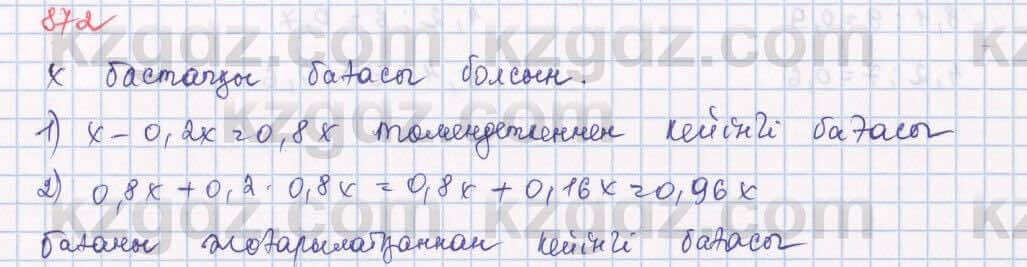 872
x бастапқы бағасы болсын.
1) x - 0,2x = 0,8x төмендеткеннен кейінгі бағасы
2) 0,8x + 0,2 · 0,8x = 0,8x + 0,16x = 0,96x
бағаны жоғарылатқаннан кейінгі бағасы
kzgdz.com